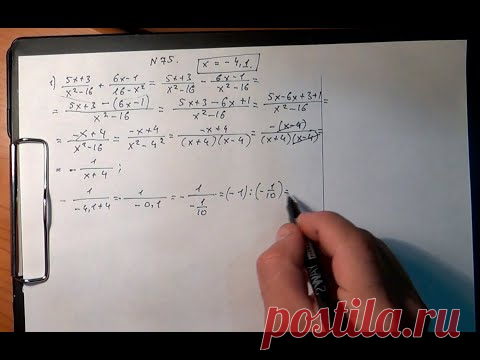 N 75. x = -4,1.
1) (5x+3)/(x²-16) + (6x-1)/(16-x²) = (5x+3)/(x²-16) - (6x-1)/(x²-16) =
= (5x+3-(6x-1))/(x²-16) = (5x+3-6x+1)/(x²-16) = (5x-6x+3+1)/(x²-16) =
= (-x+4)/(x²-16) = (-x+4)/(x²-4²) = (-x+4)/((x+4)(x-4)) = (-(x-4))/((x+4)(x-4)) =
= - 1/(x+4) ;
- 1/(-4,1+4) = - 1/(-0,1) = - 1/(-1/10) = (-1) : (-1/10) =
postila.ru